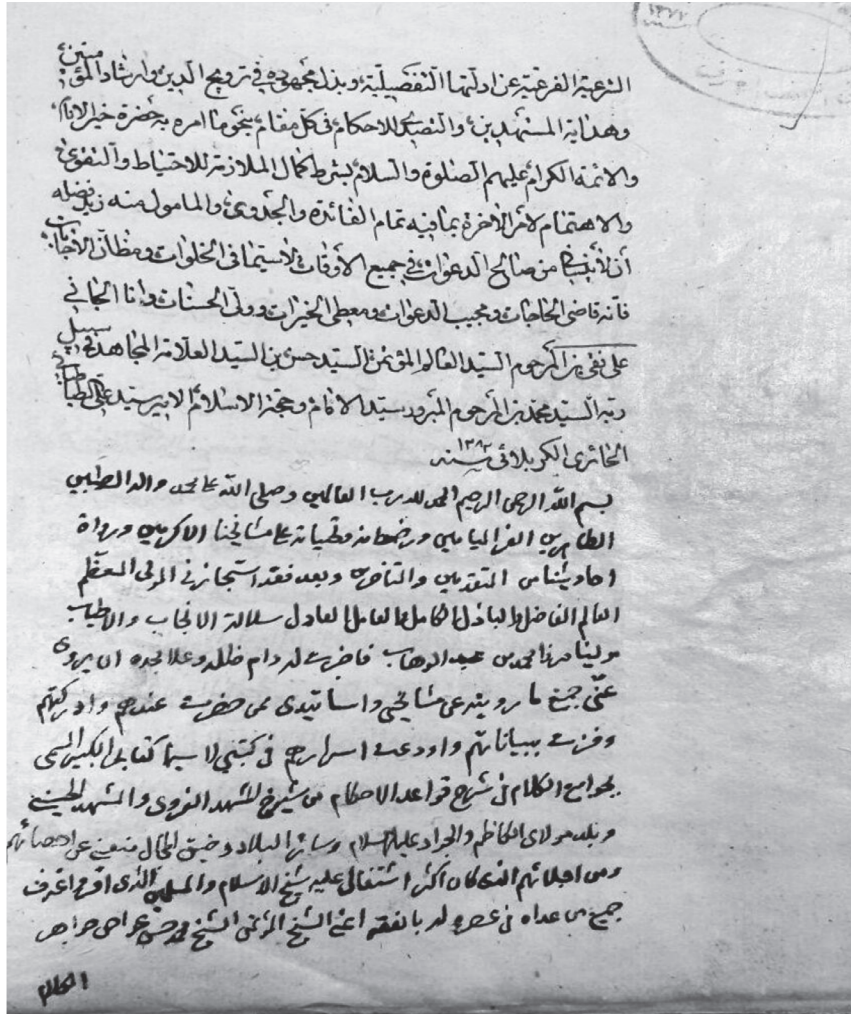 الشرعية الفرعية عن ادلتها التفصيلية، وبذل مجهوده في ترويج الدين وارشاد المؤمنين
وهداية المستهدين، والتصدى للاحكام في كل مقام، بنحو ما امره به حضرة خير الانام،
والائمة الكرام عليهم الصلوة والسلام بشرط كمال الملازمة للاحتياط والتقوى
والاهتمام لامر الآخرة بما فيه تمام الفائدة والجدوى، والمامول منه زيد فضله
أن لا ينساني من صالح الدعوات في جميع الأوقات لاسيما في الخلوات ومظان الاجابات
فانه قاضى الحاجات ومجيب الدعوات ومعطى الخيرات وولى الحسنات وانا الجاني
على نقى بن المرحوم السيد العالم المؤتمن السيد حسن بن السيد العلامة المجاهد في سبيل
ربه السيد محمد بن المرحوم المبرور سيد الانام وحجة الاسلام الامير سيد على الطباطبائى
الحائرى الكربلائى سنه ١٢٨٢
بسم الله الرحمن الرحيم الحمد لله رب العالمين وصلى الله على محمد واله الطيبين
الطاهرين الغر الميامين ورضوانه وتحياته على مشايخنا الاكرمين ورواة
احاديثنا من المتقدمين والمتأخرين وبعد فقد استجازني المولى المعظم
العالم الفاضل والباذل الكامل والعامل العادل سلالة الانجاب والاطياب
مولينا مرزا محمد بن عبد الوهاب فاجزت له دام ظله وعلا مجده ان يروى
عنى جميع ما رويته عن مشايخي واساتيدى ممن حضرت عندهم وادركتهم
وفزت ببياناتهم واودعت اسرارهم في كتبي لا سيما كتابى الكبير المسمى
بجوامع الكلام في شرح قواعد الاحكام من شيوخ المشهد الغروى والمشهد الحسيني
وبلد مولاى الكاظم والجواد عليهما السلام وسائر البلاد وضيق المجال منعنى عن احصائهم
ومن اجلائهم الذى كان اكثر اشتغالى عليه شيخ الاسلام والمسلمين الذى اقر واعترف
جميع من عداه في عصره له بالفقه اعنى الشيخ المؤتمن الشيخ محمد حسن صاحب جواهر
الكلام